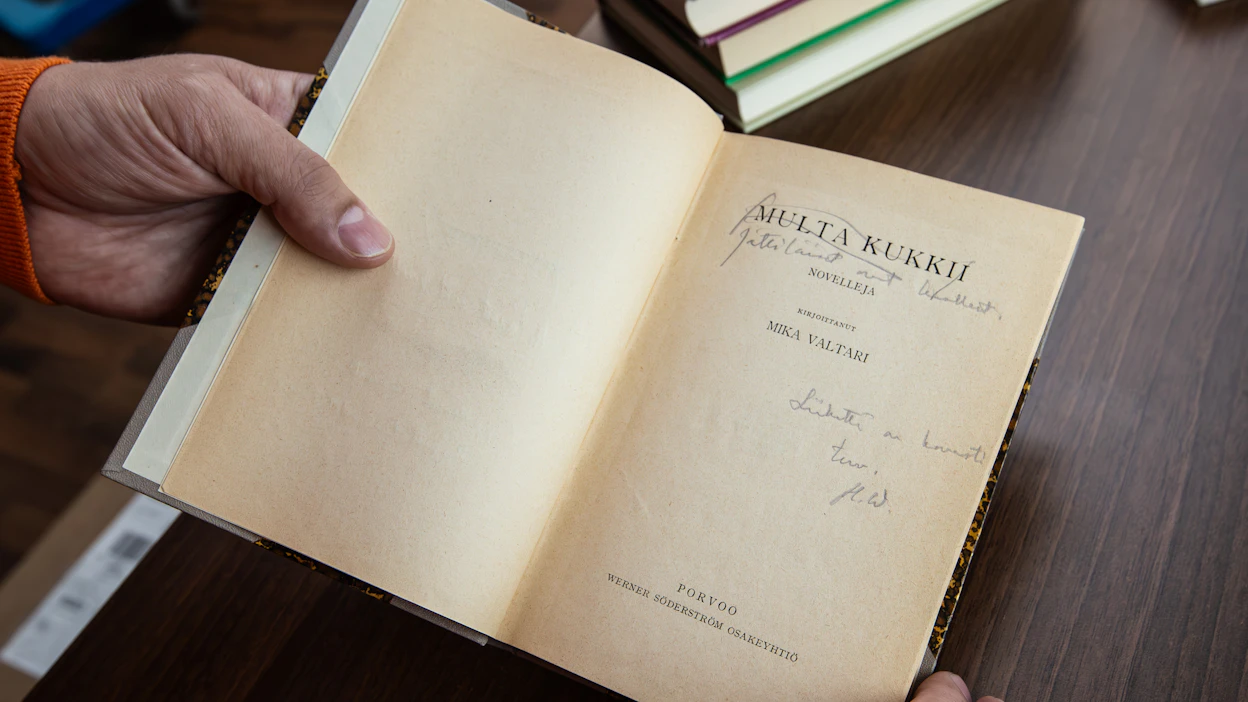 MULTA KUKKII
Jättiläiset ovat
NOVELLEJA
KIRJOITTANUT
MIKA VALTARI
on
terv.
M.W.
PORVOO
WERNER SÖDERSTRÖM OSAKEYHTIÖ